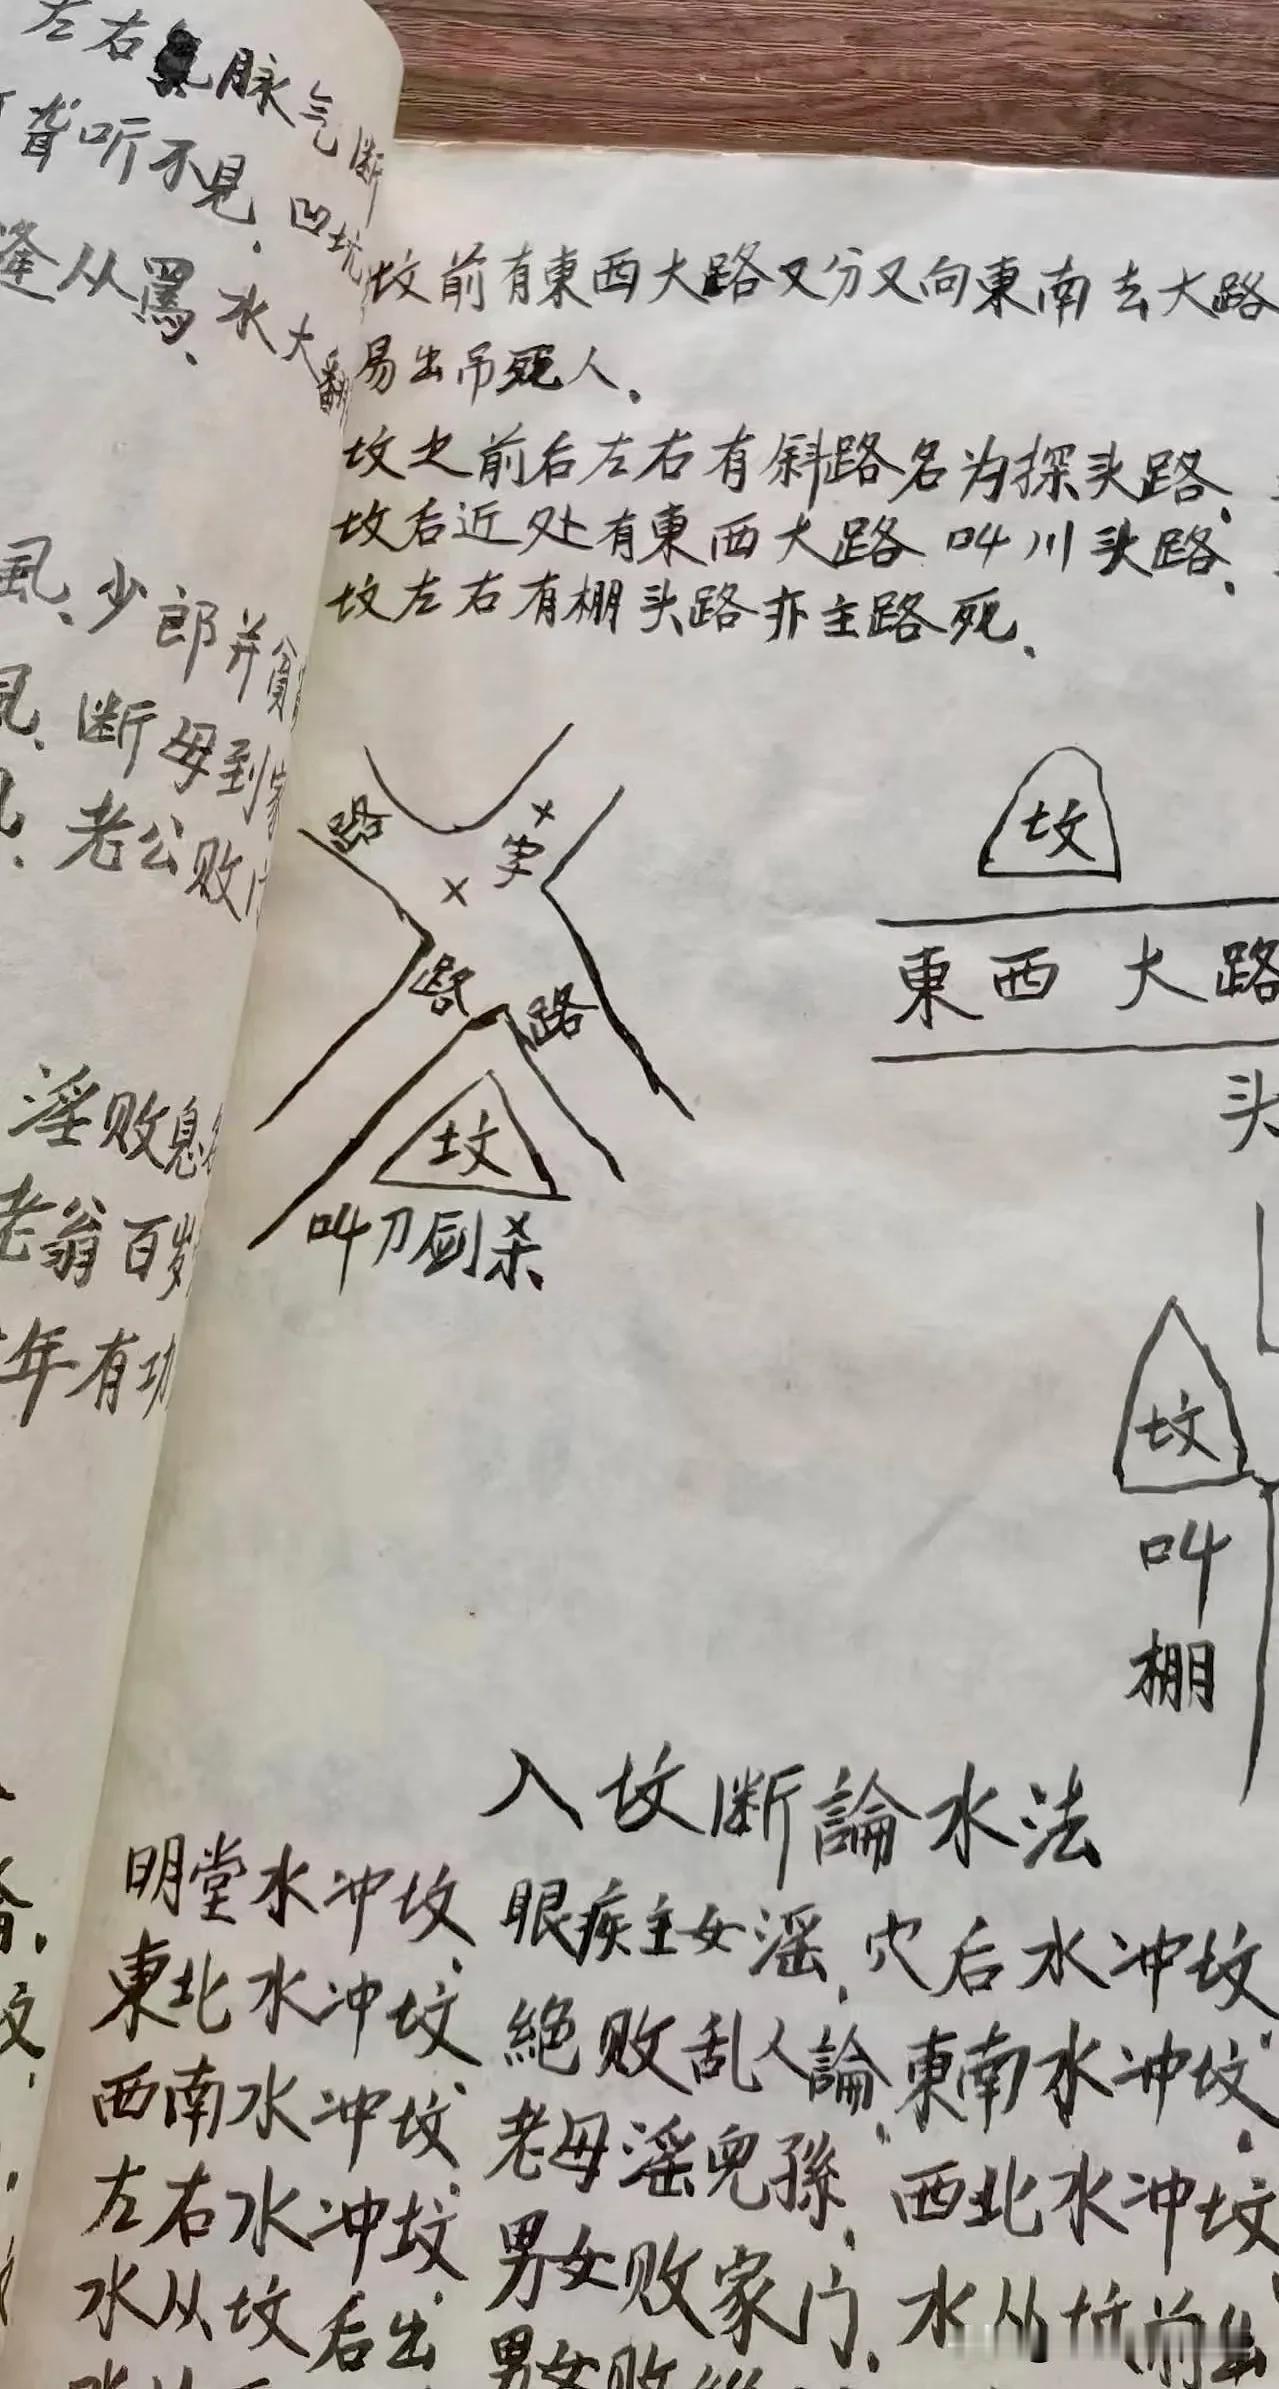 左右氣脉气断
聋听不见.凹坑
逢从罵、水大翻
風、少郎并貧
風、断母到家
風、老公败门
淫败息
老翁百岁
年有功
坟前有東西大路又分叉向東南去大路
易出吊死人、
坟之前后左右有斜路名为探头路、
坟后近处有東西大路叫川头路、
坟左右有棚头路亦主路死、
路
×
字
×
路
路
坟
叫刀剑杀、
坟
東西大路
头
坟
叫
棚
入坟断論水法
明堂水冲坟、眼疾主女淫、穴后水冲坟
東北水冲坟、絶败乱人論、東南水冲坟、
西南水冲坟、老母淫兒孫、西北水冲坟
左右水冲坟、男女败家门、水从坟前出
水从坟后出、男女败